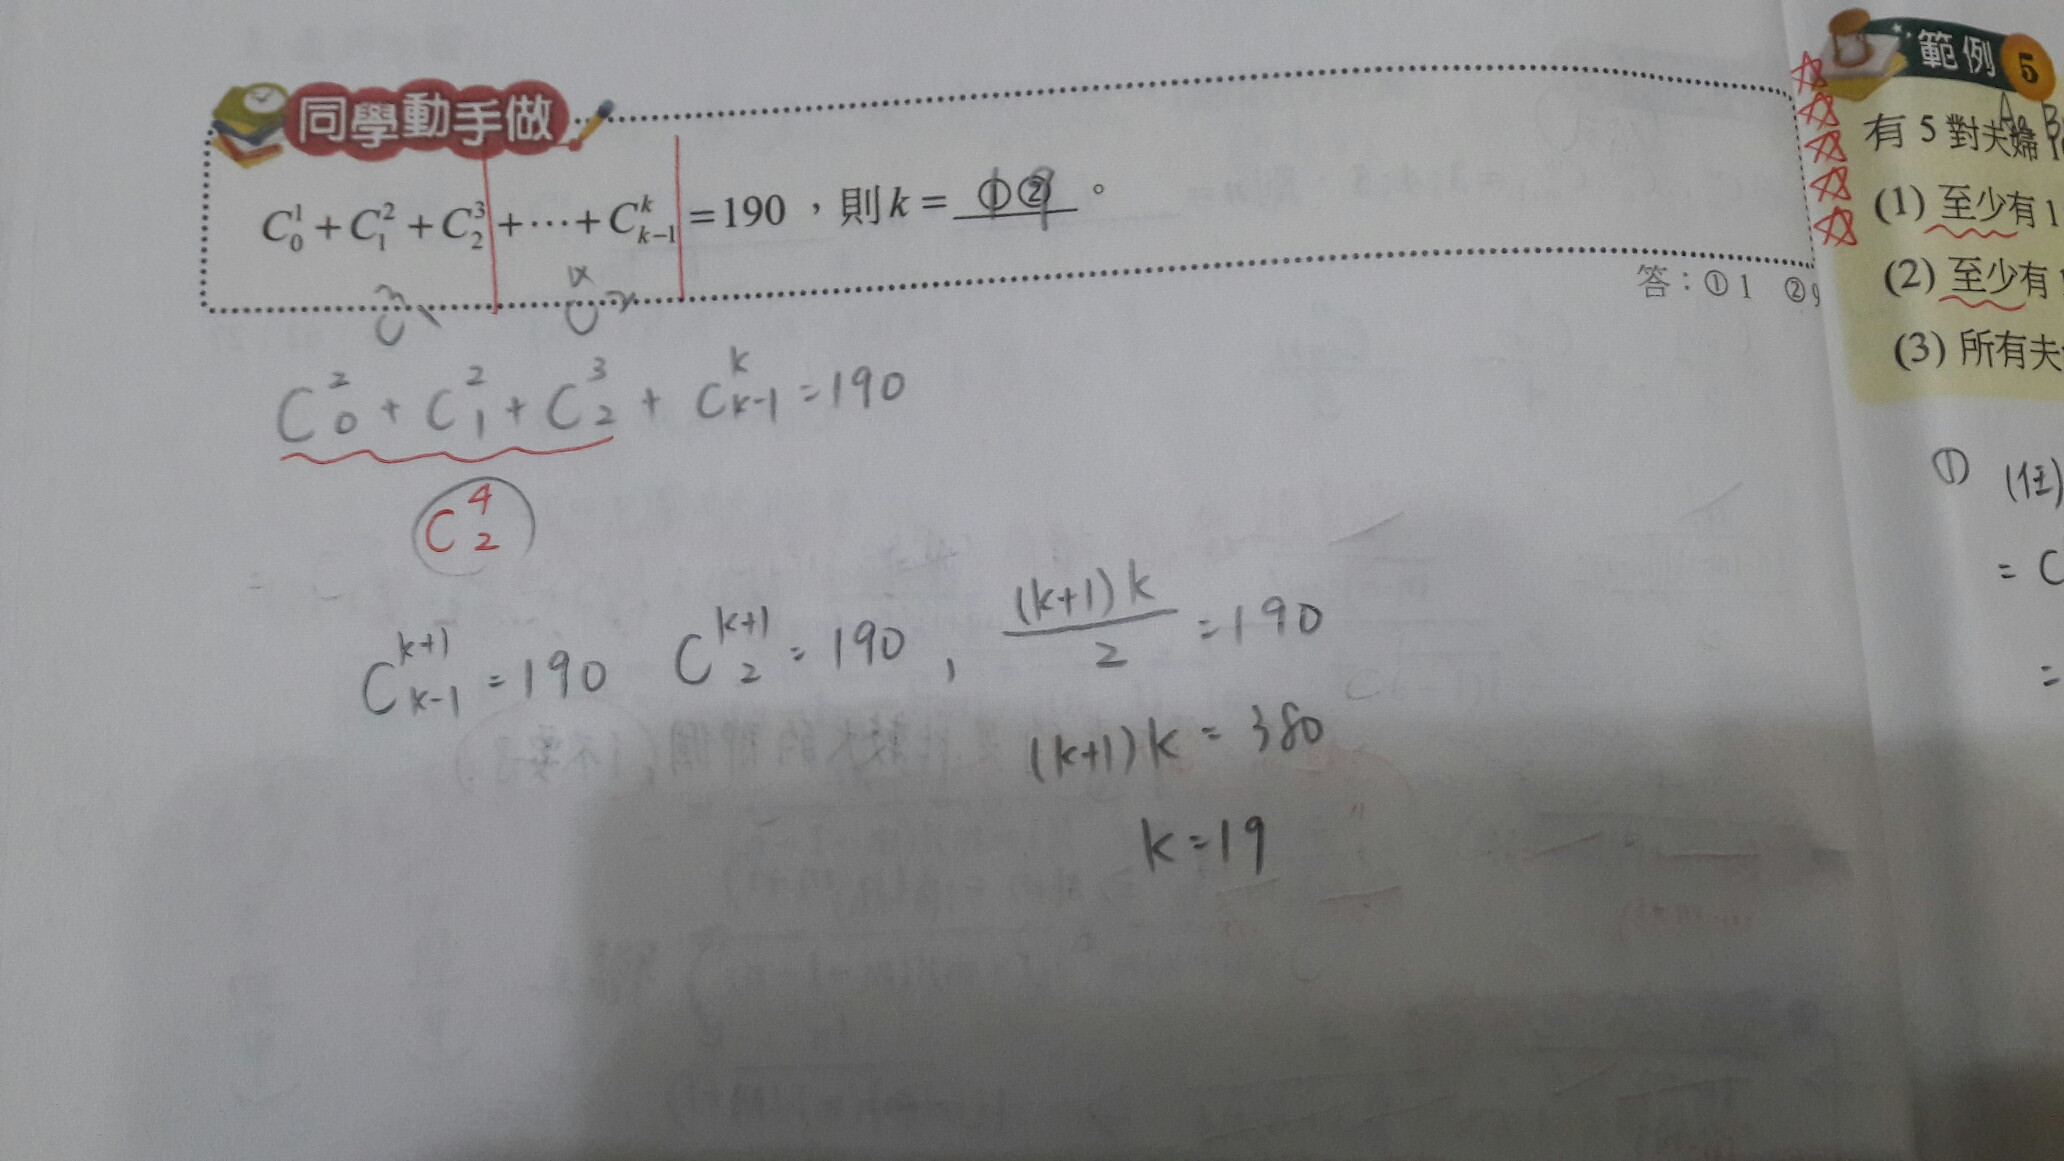 同學動手做
C₀¹ + C₁² + C₂³ + ⋯ + Cₖ₋₁ᵏ = 190，則 k = ①② 。
19
答：① 1 ② 9
C₁³ C₂⁴
C₀² + C₁² + C₂³ + Cₖ₋₁ᵏ = 190
C₂⁴
Cₖ₋₁ᵏ⁺¹ = 190 C₂ᵏ⁺¹ = 190 , (k+1)k / 2 = 190
(k+1)k = 380
k = 19
範例 5
有 5 對夫婦
(1) 至少有 1
(2) 至少有
(3) 所有夫
① (任)
= C
=